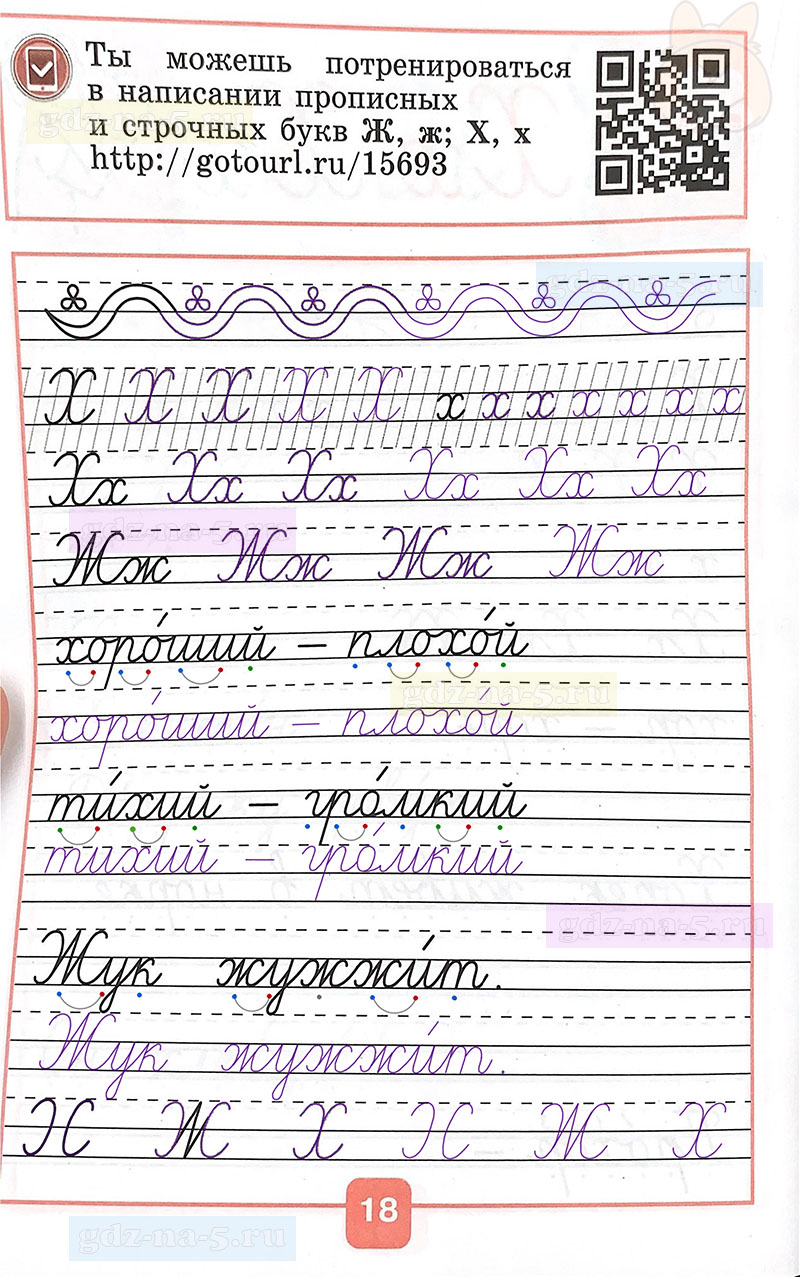 Ты можешь потренироваться
в написании прописных
и строчных букв Ж, ж; Х, х
http://gotourl.ru/15693
gdz-na-5.ru
gdz-na-5.ru
Х Х Х Х Х х х х х х х х
Хх Хх Хх Хх Хх Хх
gdz-na-5.ru
Жж Жж Жж Жж
хоро́ший – плохо́й
gdz-na-5.ru
хоро́ший – плохо́й
ти́хий – гро́мкий
ти́хий – гро́мкий
gdz-na-5.ru
Жук жужжи́т.
Жук жужжи́т.
Н Ж Х Н Ж Х
18
gdz-na-5.ru